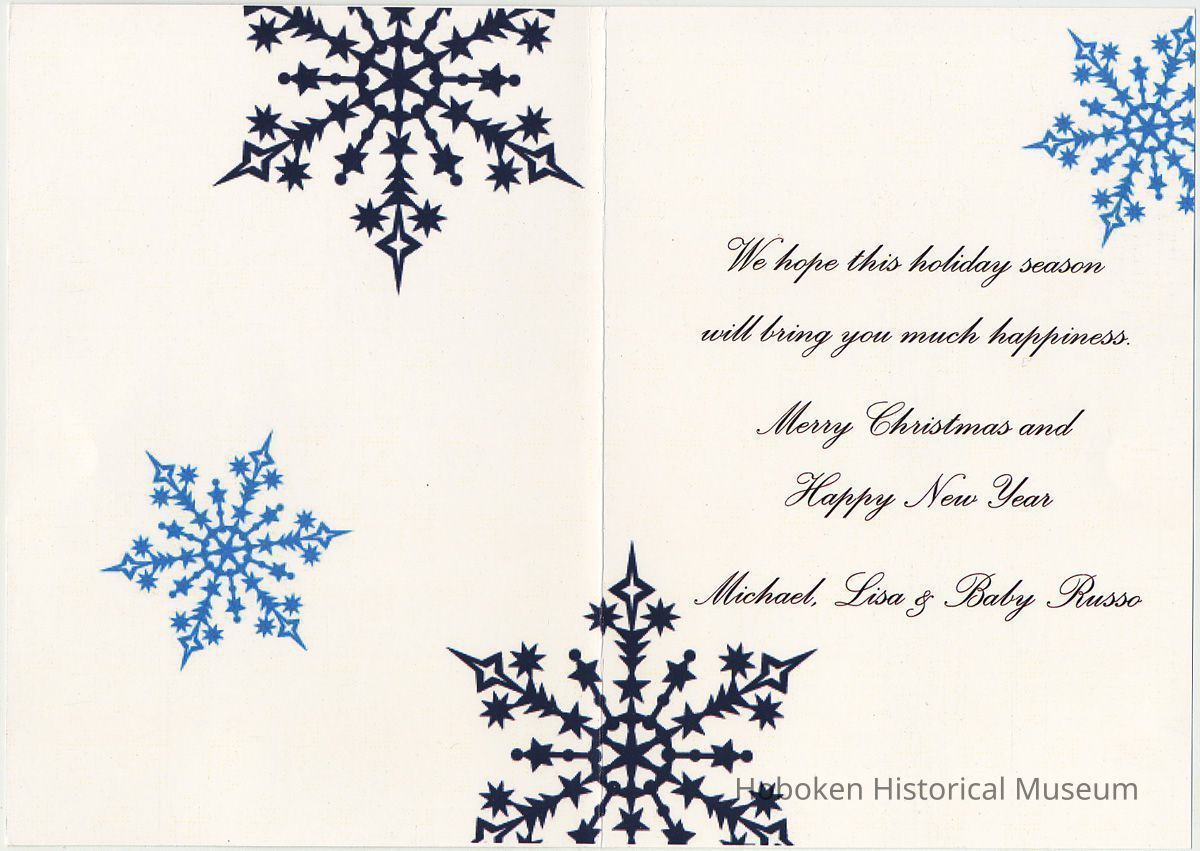 We hope this holiday season
will bring you much happiness.
Merry Christmas and
Happy New Year
Michael, Lisa & Baby Russo
Hoboken Historical Museum